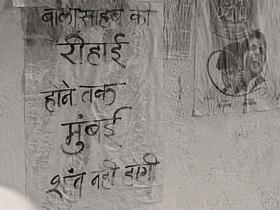 बालासाहब की
रीहाई
होने तक
मुंबई
शांत नही होगी